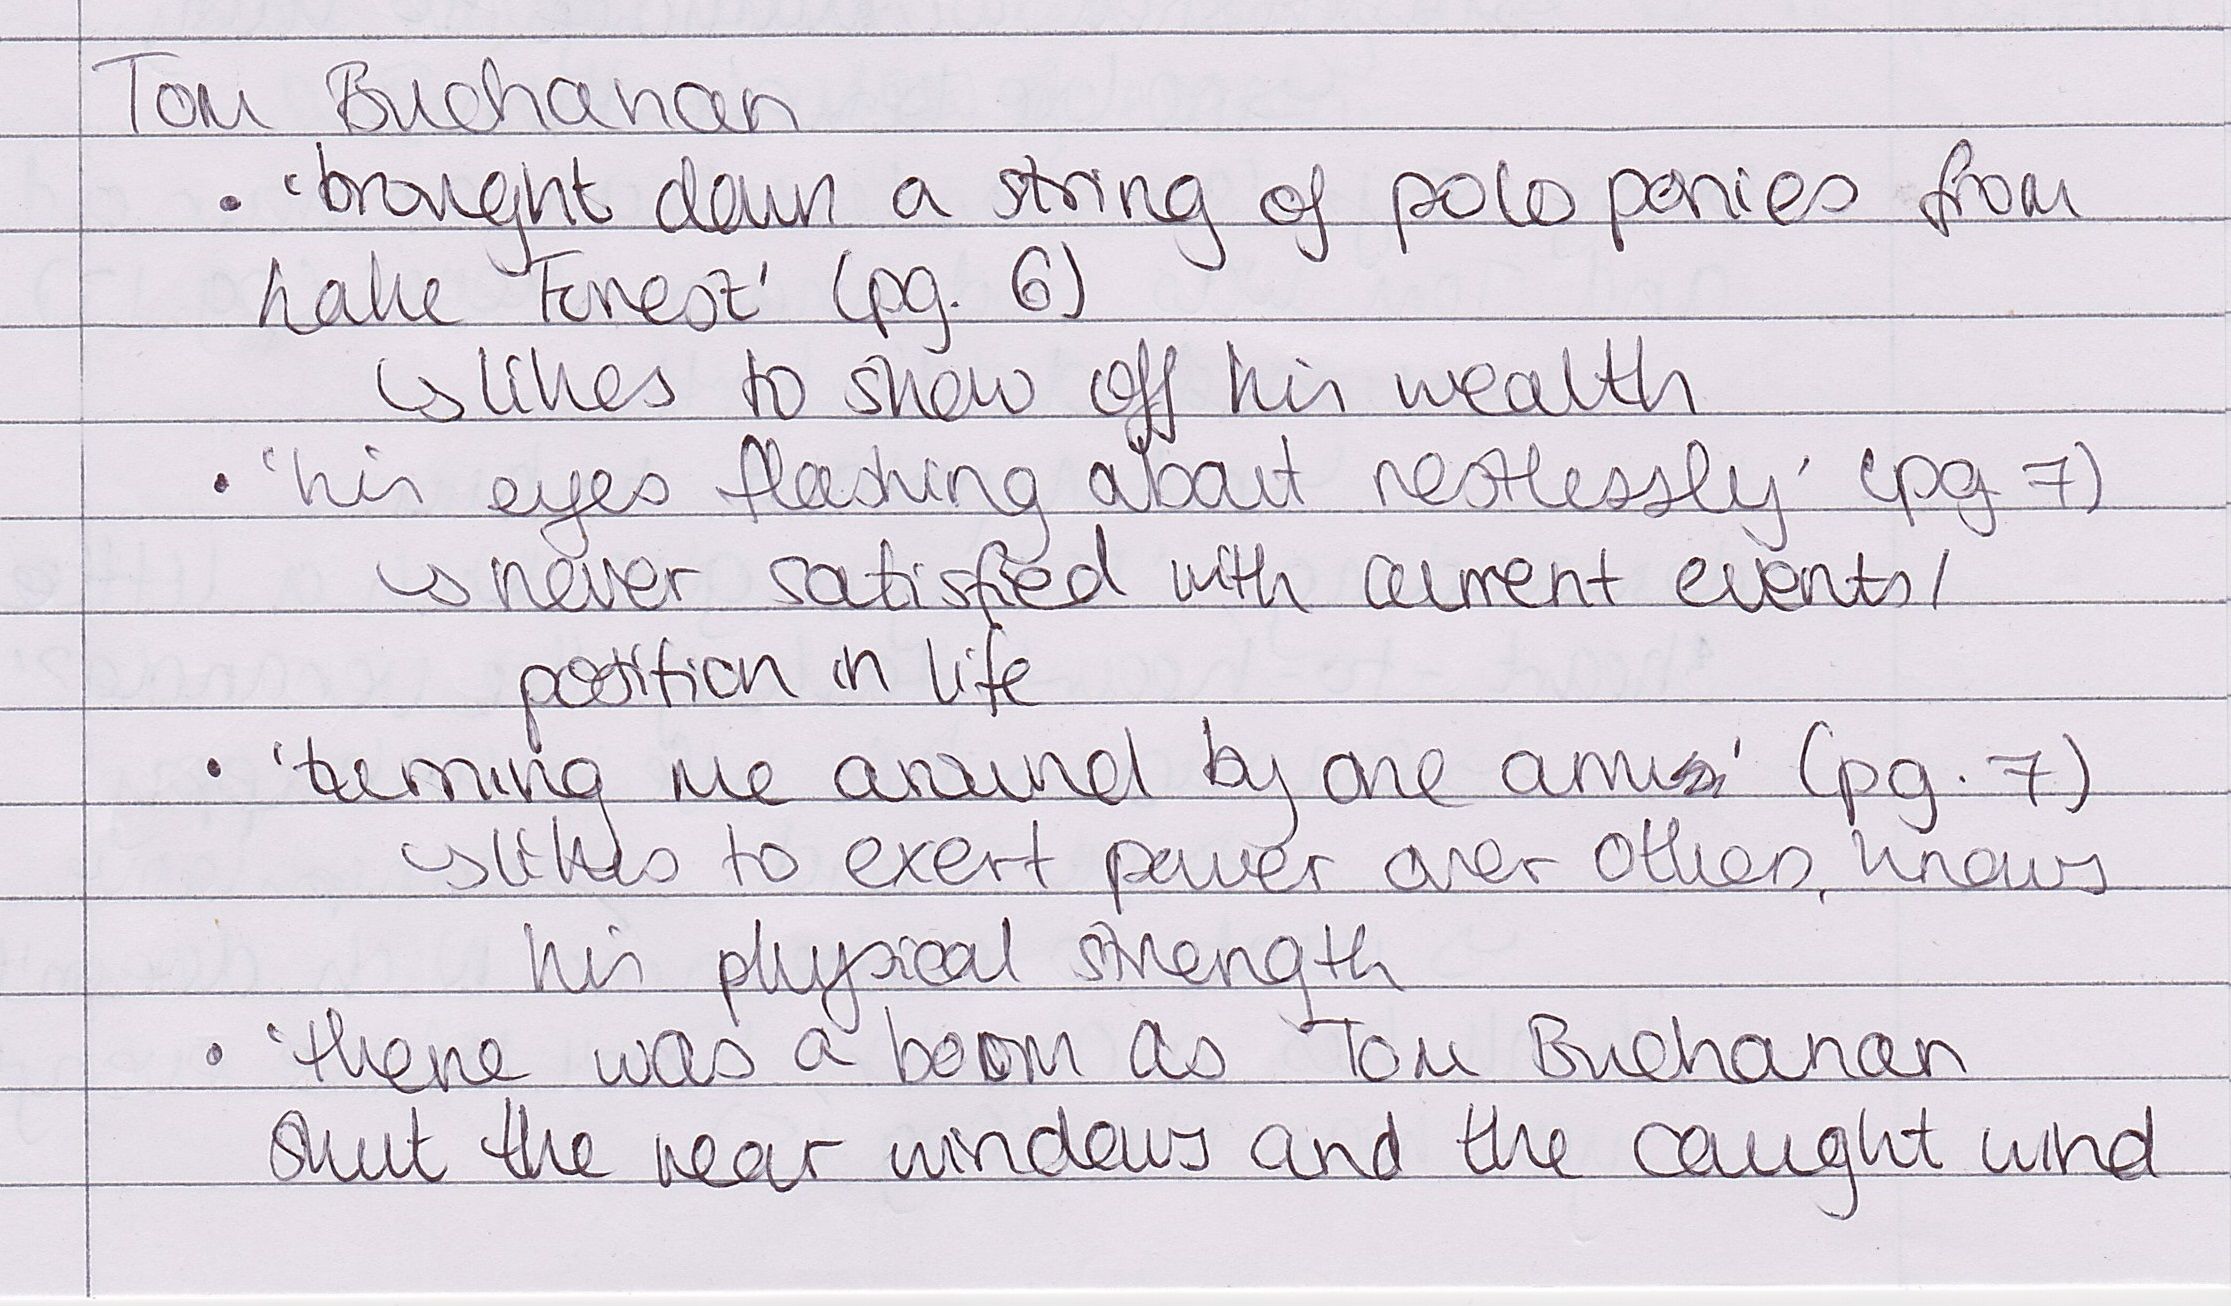 Tom Buchanan
• 'brought down a string of polo ponies from
Lake Forest' (pg. 6)
↳ likes to show off his wealth
• 'his eyes flashing about restlessly' (pg 7)
↳ never satisfied with current events/
position in life
• 'turning me around by one arm' (pg. 7)
↳ likes to exert power over others, knows
his physical strength
• 'there was a boom as Tom Buchanan
shut the rear windows and the caught wind